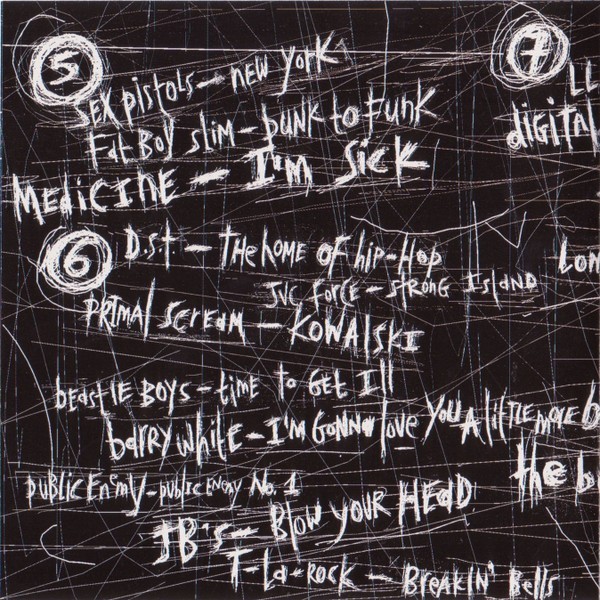 5
SEX pistols – NEW YORK
FatBoy slim – PUNK to FUNK
MEDiCiNE – I'm Sick
6
D.st. – THE HOME OF hip-Hop
JVC FORCE – STRONG ISlaND
PRIMAl SCREAM – KOWAlSKI
bEASTIE BOYS – time to GET Ill
barry while – I'm GONNA love YOU A liTTlE moRE b
PUBLIC ENEMY – PUBLIC ENEMY No. 1
JB's – BlOW YOUR HEAD
T-La-ROCK – BREAKIN' BEllS
7
LL
digiTAl
LON
the b